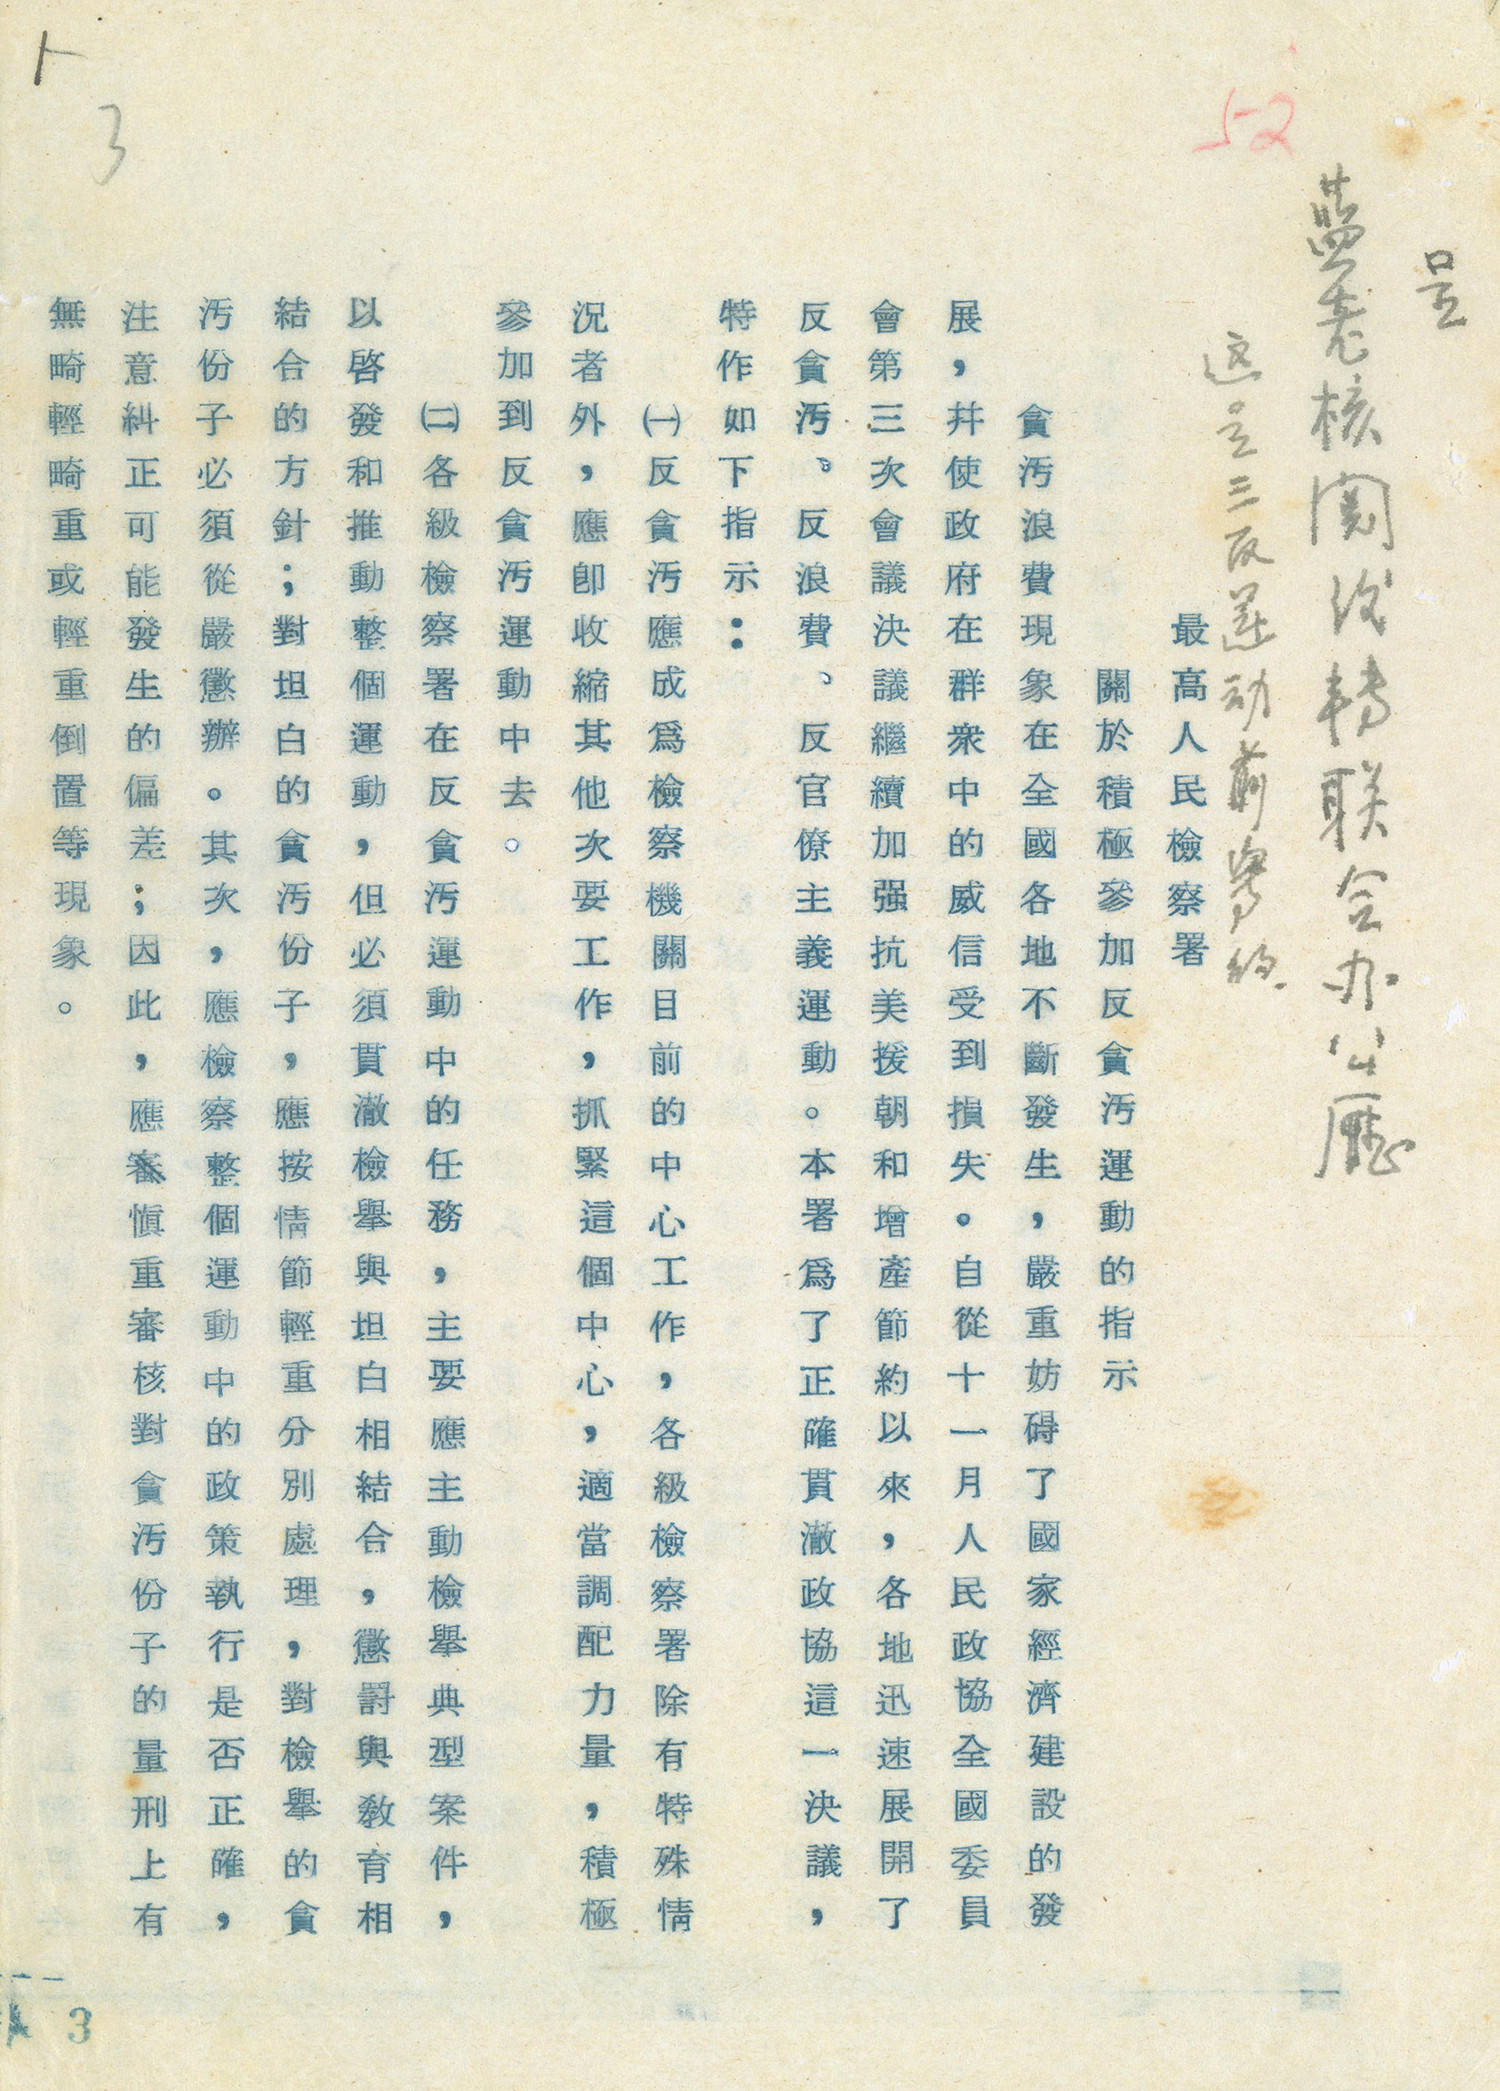 呈
蓝老核阅後转联合办公厅
这是三反运动前写的.
52
最高人民檢察署
關於積極參加反貪汚運動的指示
貪汚浪費現象在全國各地不斷發生，嚴重妨碍了國家經濟建設的發
展，幷使政府在群衆中的威信受到損失。自從十一月人民政協全國委員
會第三次會議決議繼續加强抗美援朝和增產節約以來，各地迅速展開了
反貪汚、反浪費、反官僚主義運動。本署爲了正確貫澈政協這一決議，
特作如下指示：
㈠反貪汚應成爲檢察機關目前的中心工作，各級檢察署除有特殊情
況者外，應卽收縮其他次要工作，抓緊這個中心，適當調配力量，積極
參加到反貪汚運動中去。
㈡各級檢察署在反貪汚運動中的任務，主要應主動檢舉典型案件，
以啓發和推動整個運動，但必須貫澈檢舉與坦白相結合，懲罰與敎育相
結合的方針；對坦白的貪汚份子，應按情節輕重分別處理，對檢舉的貪
汚份子必須從嚴懲辦。其次，應檢察整個運動中的政策執行是否正確，
注意糾正可能發生的偏差；因此，應審愼重審核對貪汚份子的量刑上有
無畸輕畸重或輕重倒置等現象。
3
3